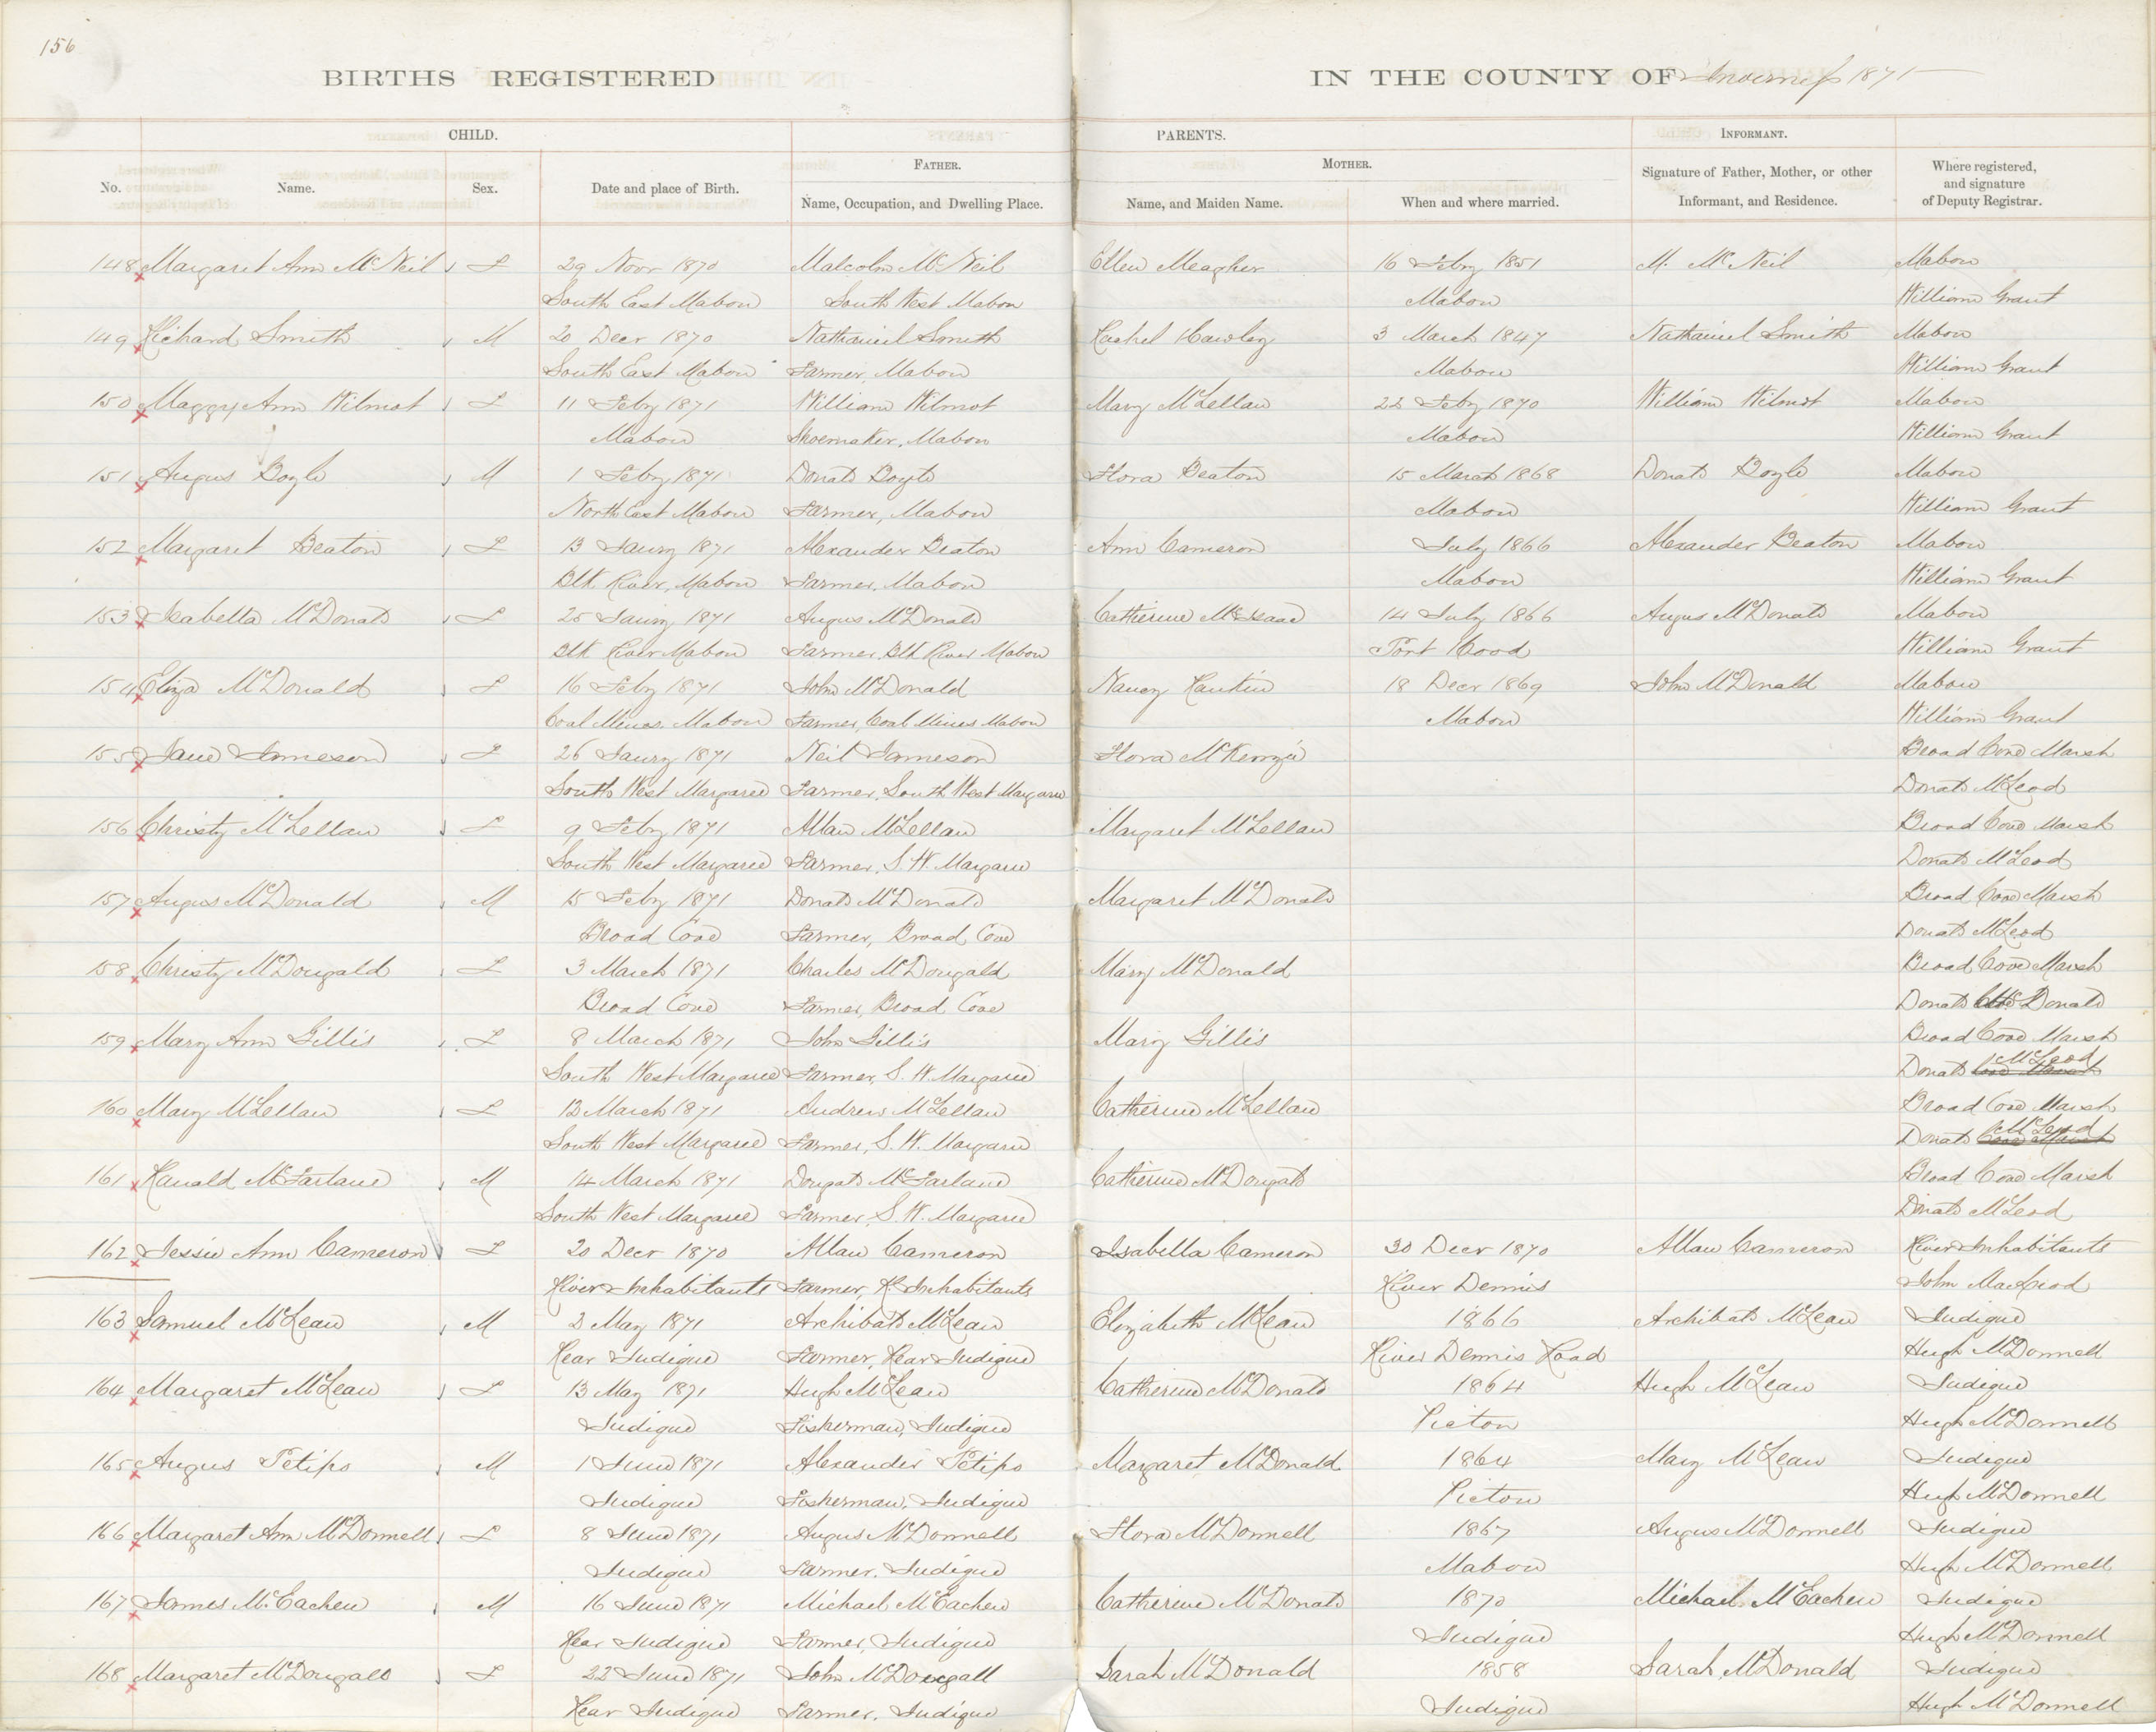 156
BIRTHS REGISTERED IN THE COUNTY OF Inverness 1871
CHILD. PARENTS. INFORMANT.
No. Name. Sex. Date and place of Birth. FATHER. Name, Occupation, and Dwelling Place. MOTHER. Name, and Maiden Name. When and where married. Signature of Father, Mother, or other Informant, and Residence. Where registered, and signature of Deputy Registrar.
148 Margaret Ann McNeil F 29 Novr 1870 Malcolm McNeil Ellen Meagher 16 Feby 1851 M. McNeil Mabou
South East Mabou South West Mabou Mabou William Grant
149 Richard Smith M 20 Decr 1870 Nathaniel Smith Rachel Hawley 3 March 1847 Nathaniel Smith Mabou
South East Mabou Farmer, Mabou Mabou William Grant
150 Maggy Ann Wilmot F 11 Feby 1871 William Wilmot Mary McLellan 22 Feby 1870 William Wilmot Mabou
Mabou Shoemaker, Mabou Mabou William Grant
151 Angus Boyle M 1 Feby 1871 Donald Boyle Flora Beaton 15 March 1868 Donald Boyle Mabou
North East Mabou Farmer, Mabou Mabou William Grant
152 Margaret Beaton F 13 Jauny 1871 Alexander Beaton Ann Cameron July 1866 Alexander Beaton Mabou
Blk River, Mabou Farmer, Mabou Mabou William Grant
153 Isabella McDonald F 25 Jauny 1871 Angus McDonald Catherine McIsaac 14 July 1866 Angus McDonald Mabou
Blk River Mabou Farmer, Blk River Mabou Port Hood William Grant
154 Eliza McDonald F 16 Feby 1871 John McDonald Nancy Rankin 18 Decr 1869 John McDonald Mabou
Coal Mines, Mabou Farmer, Coal Mines Mabou Mabou William Grant
155 Jane Jameson F 26 Jauny 1871 Neil Jameson Flora McKenzie Broad Cove Marsh
South West Margaree Farmer, South West Margaree Donald McLeod
156 Christy McLellan F 9 Feby 1871 Allan McLellan Margaret McLellan Broad Cove Marsh
South West Margaree Farmer, S. W. Margaree Donald McLeod
157 Angus McDonald M 15 Feby 1871 Donald McDonald Margaret McDonald Broad Cove Marsh
Broad Cove Farmer, Broad Cove Donald McLeod
158 Christy McDougald F 3 March 1871 Charles McDougald Mary McDonald Broad Cove Marsh
Broad Cove Farmer, Broad Cove Donald McDonald
159 Mary Ann Gillis F 8 March 1871 John Gillis Mary Gillis Broad Cove Marsh
South West Margaree Farmer, S. W. Margaree Donald McLeod
160 Mary McLellan F 13 March 1871 Andrew McLellan Catherine McLellan Broad Cove Marsh
South West Margaree Farmer, S. W. Margaree Donald McLeod
161 Ranald McFarlane M 14 March 1871 Dougald McFarlane Catherine McDougald Broad Cove Marsh
South West Margaree Farmer, S. W. Margaree Donald McLeod
162 Jessie Ann Cameron F 20 Decr 1870 Allan Cameron Isabella Cameron 30 Decr 1870 Allan Cameron River Inhabitants
River Inhabitants Farmer, R. Inhabitants River Dennis John MacLeod
163 Samuel McLean M 2 May 1871 Archibald McLean Elizabeth McLean 1866 Archibald McLean Judique
Rear Judique Farmer, Rear Judique River Dennis Road Hugh McDonnell
164 Margaret McLean F 13 May 1871 Hugh McLean Catherine McDonald 1864 Hugh McLean Judique
Judique Fisherman, Judique Picton Hugh McDonnell
165 Angus Petipo M 1 June 1871 Alexander Petipo Margaret McDonald 1864 Mary McLean Judique
Judique Fisherman, Judique Picton Hugh McDonnell
166 Margaret Ann McDonnell F 8 June 1871 Angus McDonnell Flora McDonnell 1867 Angus McDonnell Judique
Judique Farmer, Judique Mabou Hugh McDonnell
167 James McEachen M 16 June 1871 Michael McEachen Catherine McDonald 1870 Michael McEachen Judique
Rear Judique Farmer, Judique Judique Hugh McDonnell
168 Margaret McDougall F 22 June 1871 John McDougall Sarah McDonald 1858 Sarah McDonald Judique
Rear Judique Farmer, Judique Judique Hugh McDonnell